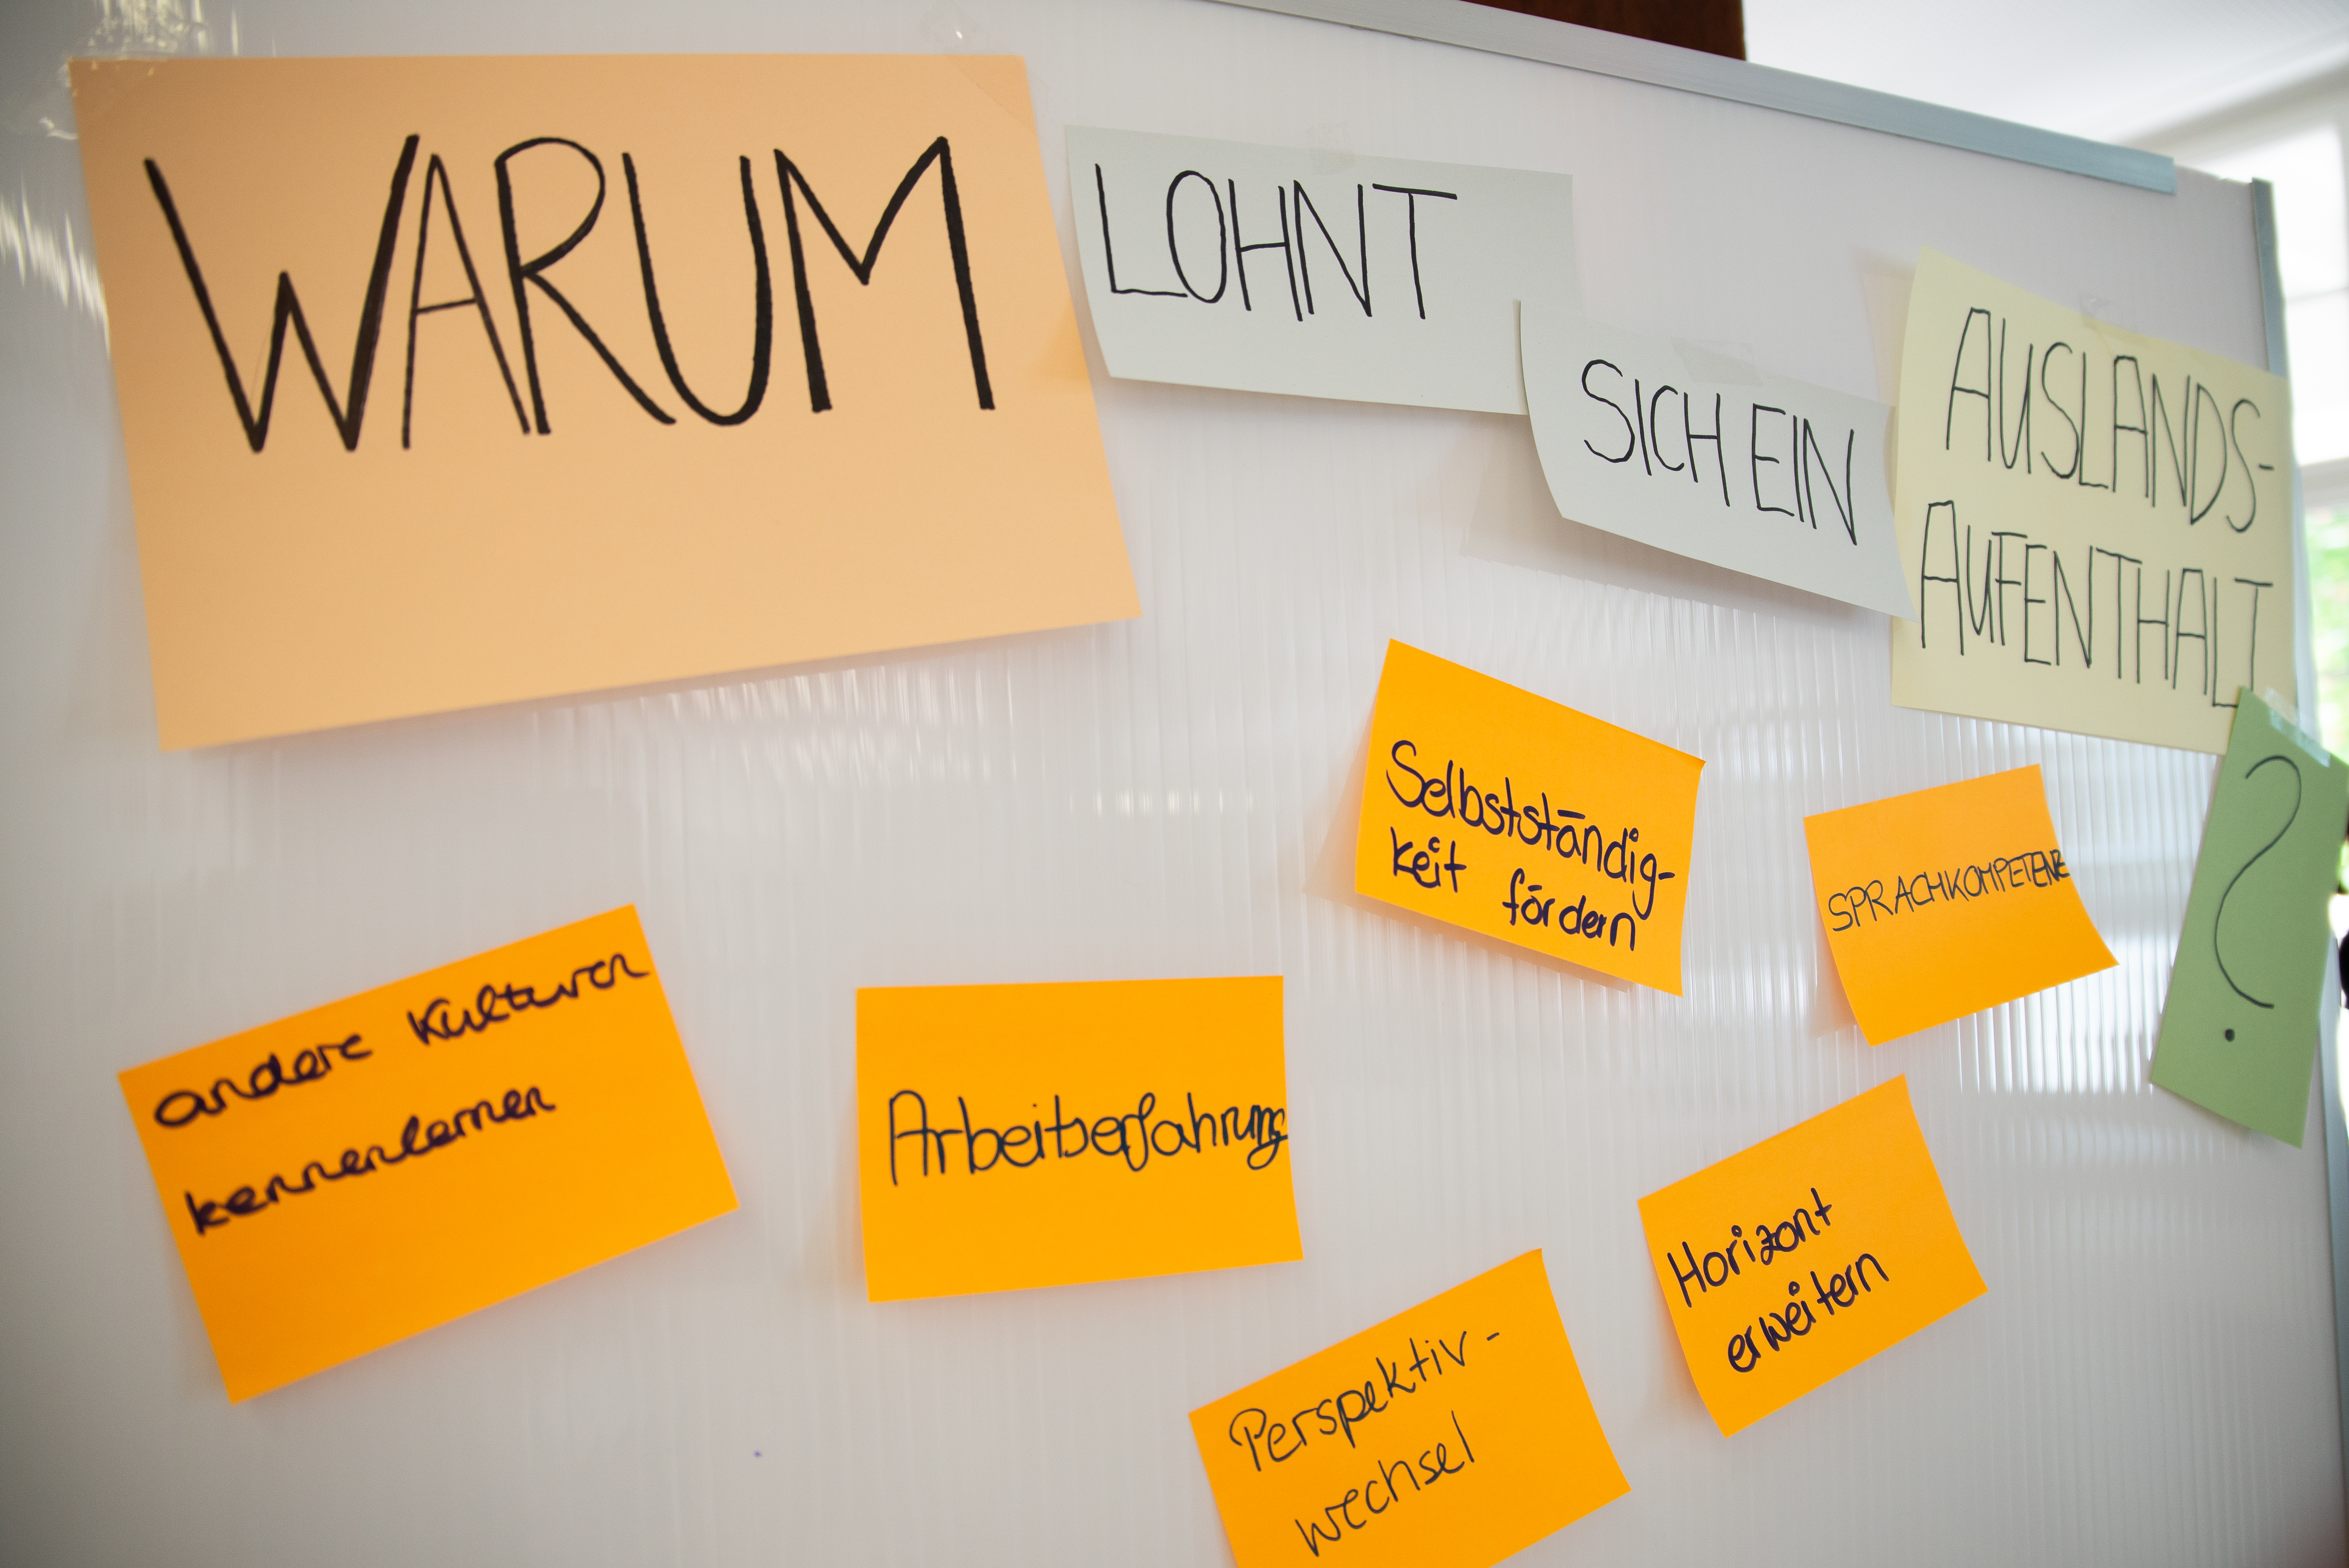 WARUM
LOHNT
SICH EIN
AUSLANDS-
AUFENTHALT
?
Selbstständig-
keit fördern
SPRACHKOMPETENZ
andere Kulturen
kennenlernen
Arbeitserfahrung
Horizont
erweitern
Perspektiv-
wechsel